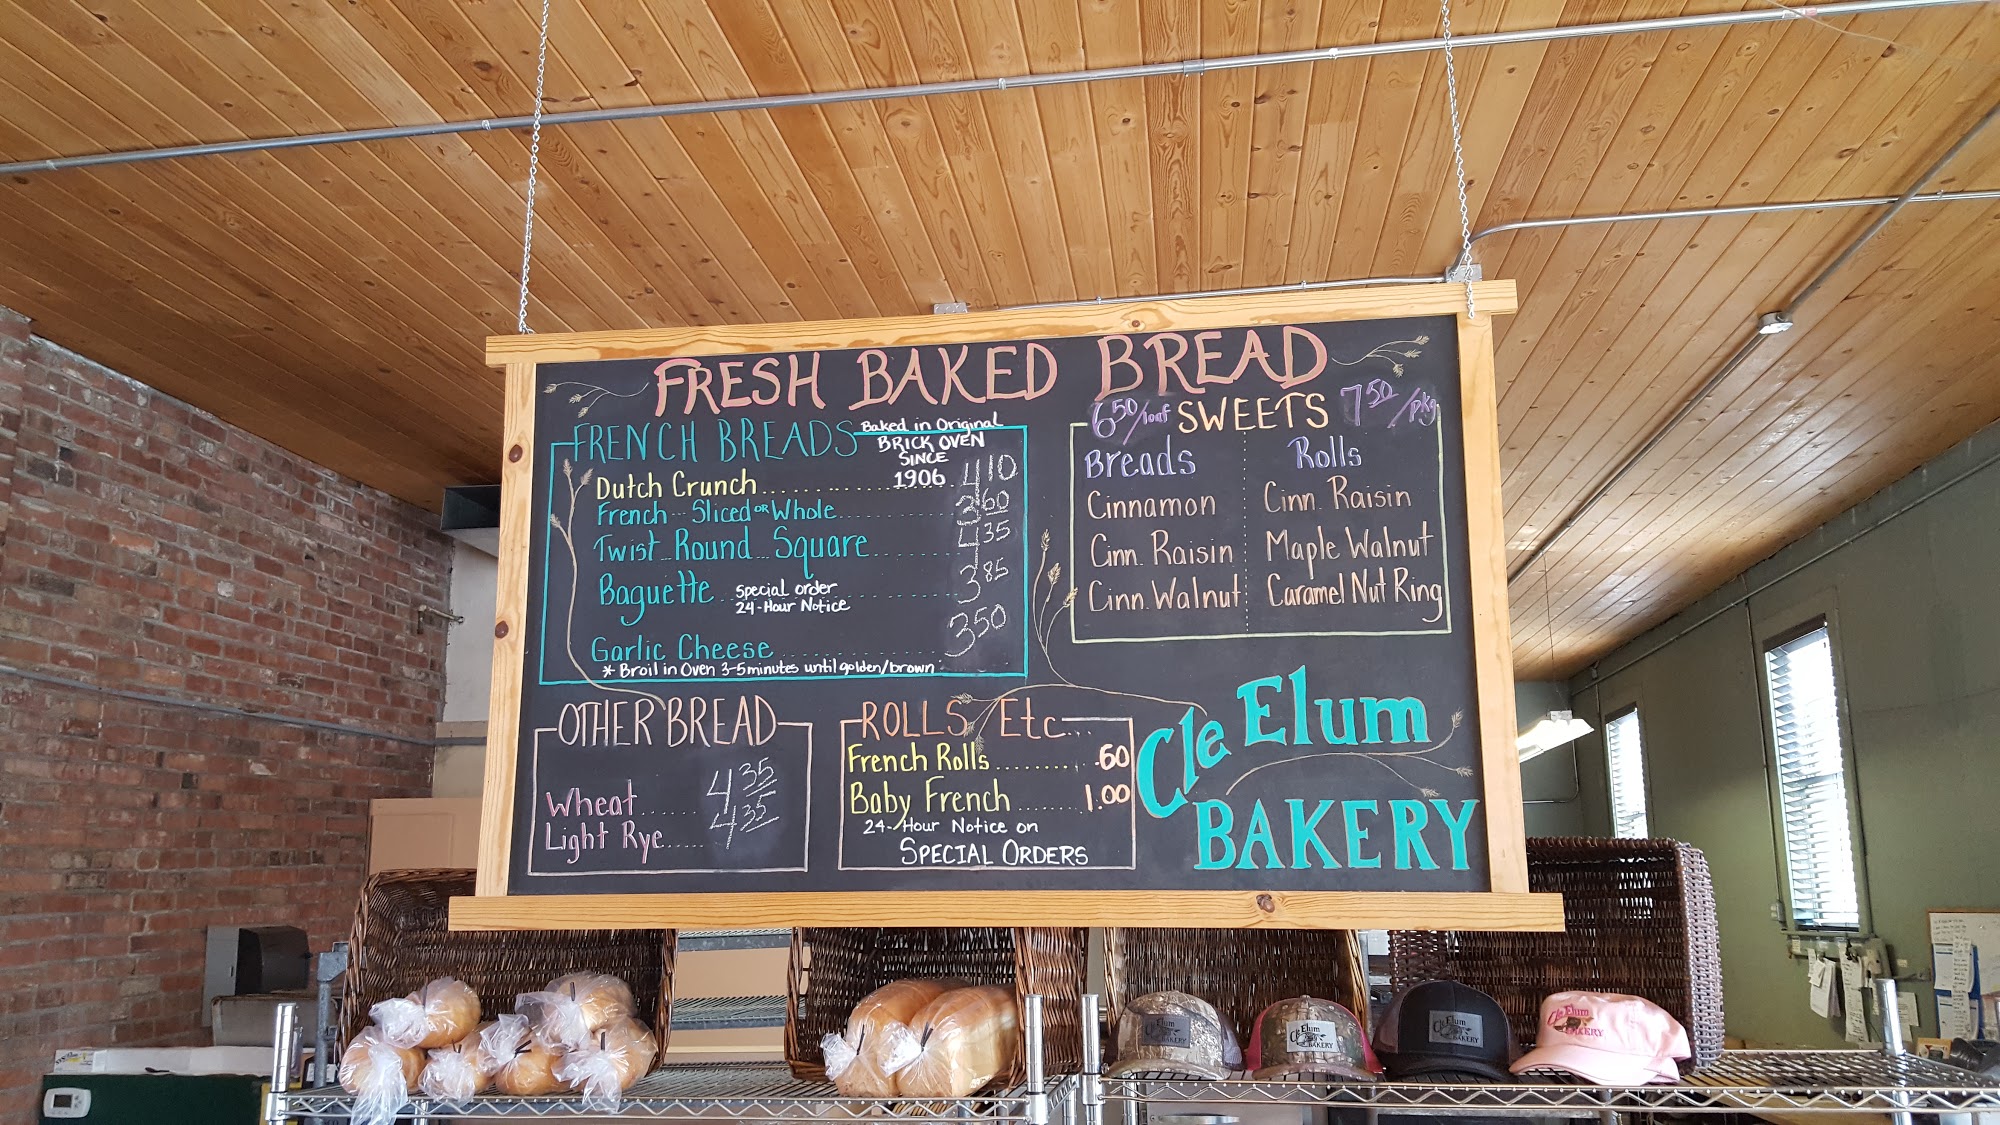 FRESH BAKED BREAD
FRENCH BREADS
Baked in Original
BRICK OVEN
SINCE
1906
Dutch Crunch.................... 4 10
French --- Sliced OR Whole.................... 3 60
Twist... Round... Square.......... 4 35
Baguette... Special order .......... 3 85
24-Hour Notice
Garlic Cheese.................... 3 50
* Broil in Oven 3-5 minutes until golden/brown
6 50/loaf SWEETS 7 50/pkg
Breads
Cinnamon
Cinn. Raisin
Cinn. Walnut
Rolls
Cinn. Raisin
Maple Walnut
Caramel Nut Ring
OTHER BREAD
Wheat...... 4 35
Light Rye..... 4 35
ROLLS Etc...
French Rolls.......... .60
Baby French ....... 1.00
24-Hour Notice on
SPECIAL ORDERS
Cle Elum
BAKERY
Cle Elum
BAKERY
Cle Elum
BAKERY
Cle Elum
BAKERY
Cle Elum
BAKERY